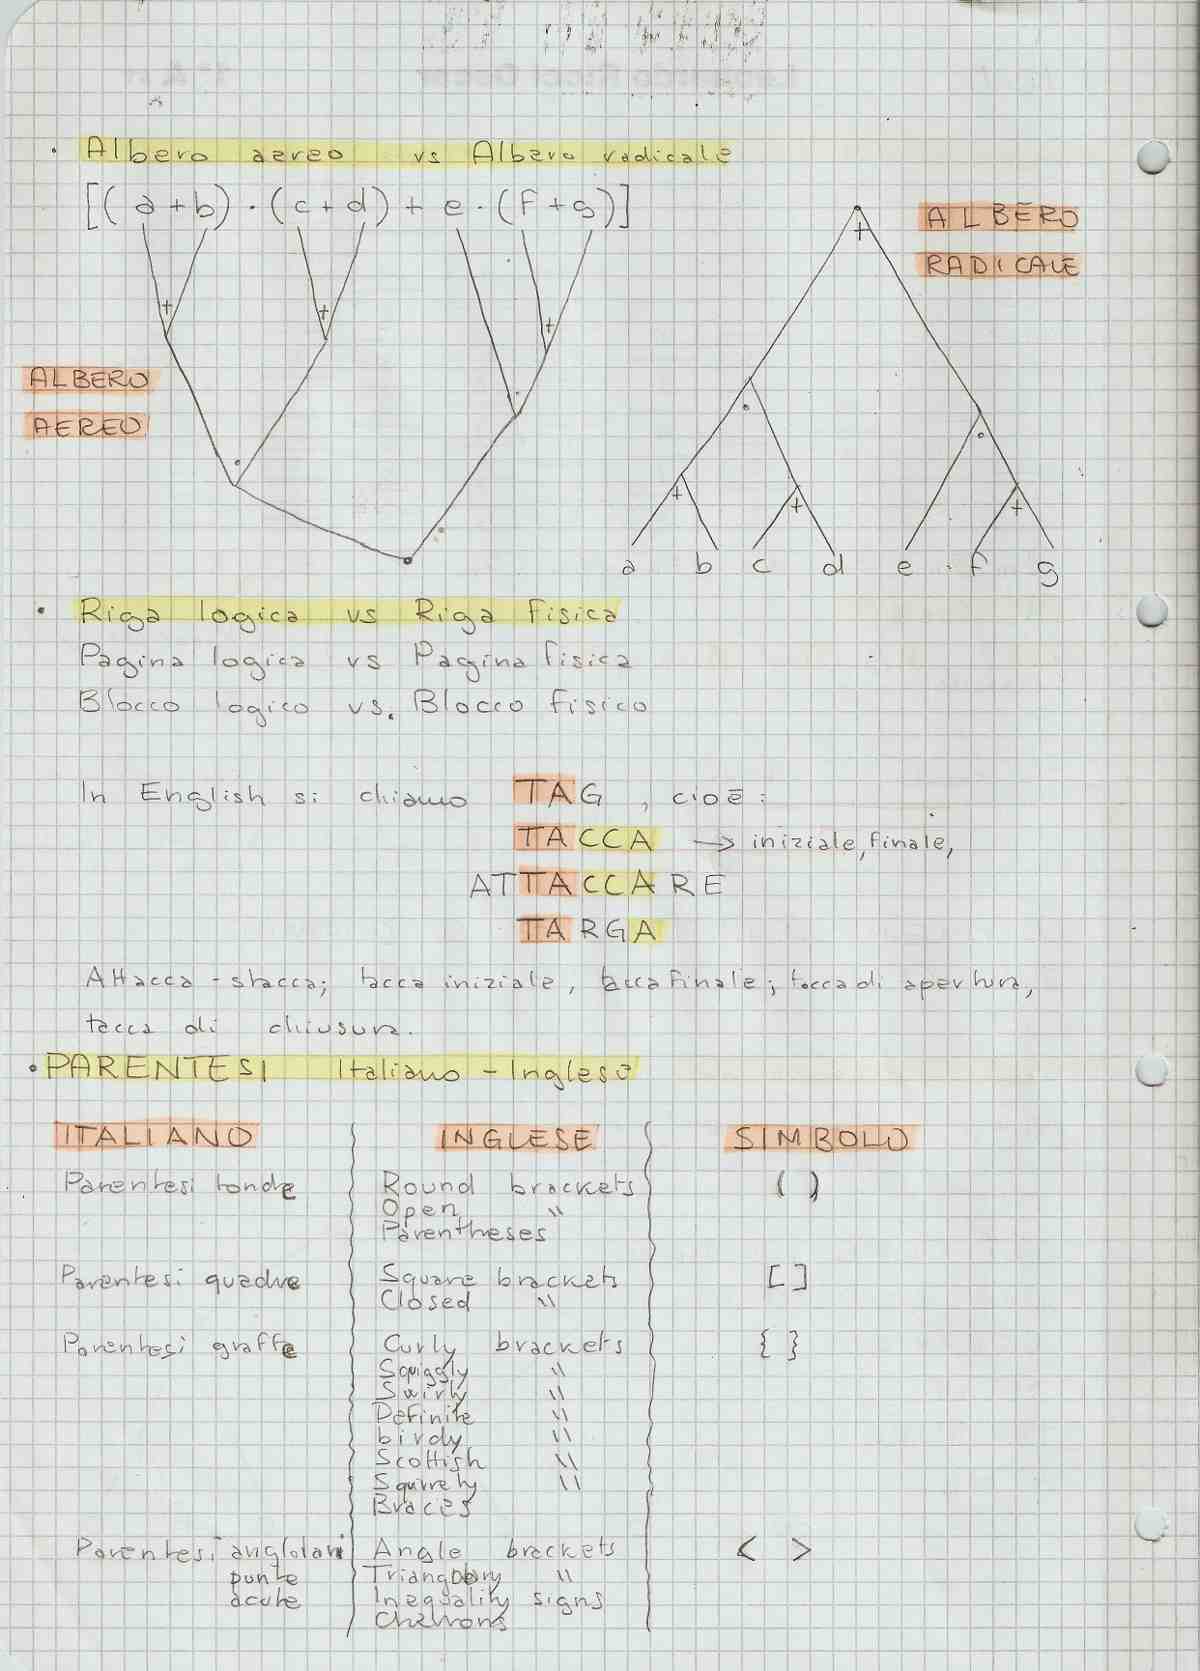 • Albero aereo vs Albero radicale
[(a+b)·(c+d)+e·(f+g)]
ALBERO
RADICALE
+
+
+
+
ALBERO
AEREO
+
+
+
a b c d e f g
• Riga logica vs Riga fisica
Pagina logica vs Pagina fisica
Blocco logico vs. Blocco fisico
In English si chiamo TAG, cioè:
TACCA → iniziale, finale,
ATTACCARE
TARGA
Attacca - stacca; tacca iniziale, tacca finale; tacca di apertura,
tacca di chiusura.
• PARENTESI Italiano - Inglese
ITALIANO INGLESE SIMBOLO
Parentesi tonde Round brackets ( )
Open "
Parentheses
Parentesi quadre Square brackets [ ]
Closed "
Parentesi graffe Curly brackets { }
Squiggly "
Swirly "
Definite "
birdy "
Scottish "
Squirrely "
Braces
Parentesi anglolari Angle brackets < >
punte Triangolary "
acute Inequality signs
Chevrons